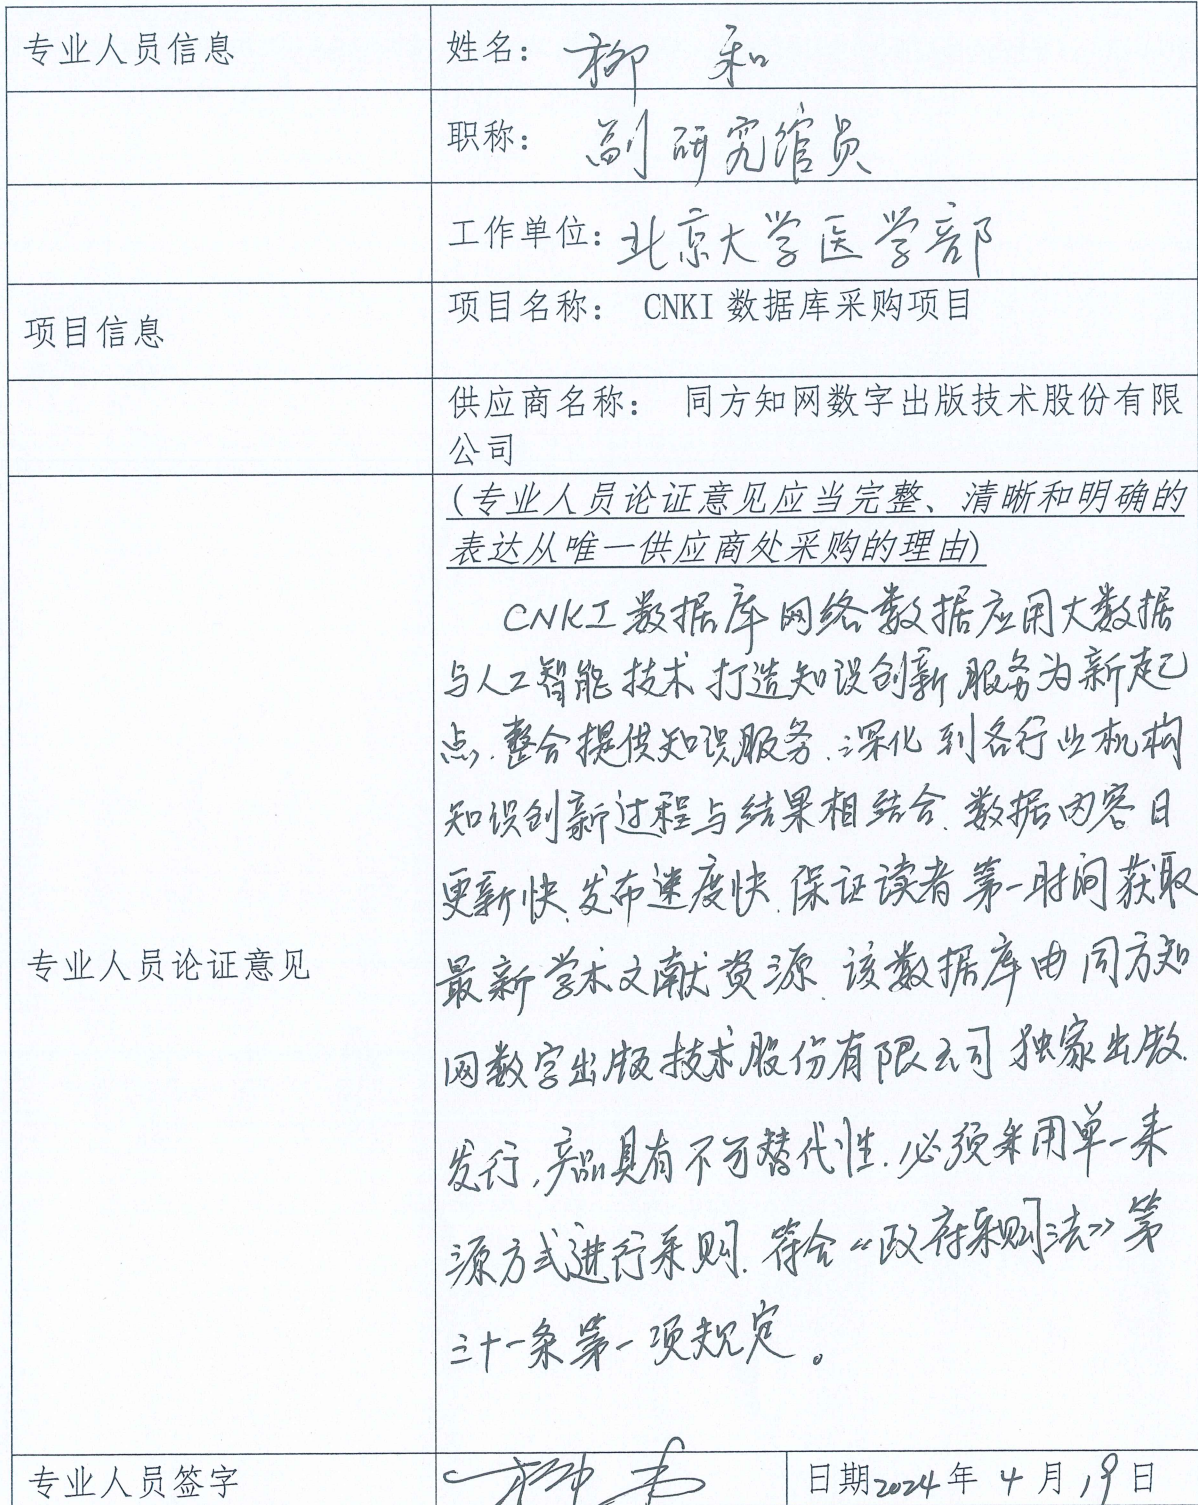 专业人员信息
姓名: 柳 和
职称: 副研究馆员
工作单位: 北京大学医学部
项目信息
项目名称: CNKI 数据库采购项目
供应商名称: 同方知网数字出版技术股份有限
公司
(专业人员论证意见应当完整、清晰和明确的
表达从唯一供应商处采购的理由)
CNKI数据库网络数据应用大数据
与人工智能技术打造知识创新服务为新起
点.整合提供知识服务.深化到各行业机构
知识创新过程与结果相结合.数据内容日
更新快.发布速度快.保证读者第一时间获取
最新学术文献资源.该数据库由同方知
网数字出版技术股份有限公司独家出版.
发行,产品具有不可替代性.必须采用单一来
源方式进行采购.符合《政府采购法》第
三十一条第一项规定。
专业人员论证意见
专业人员签字
日期2024年 4 月 19 日